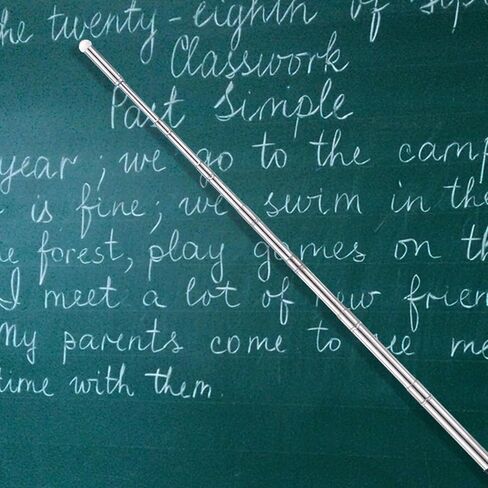 he twenty-eighth of
Classwork
Past Simple
year; we go to the camp
is fine; we swim in the
forest, play games on th
I meet a lot of new frien
My parents come to see me
time with them.